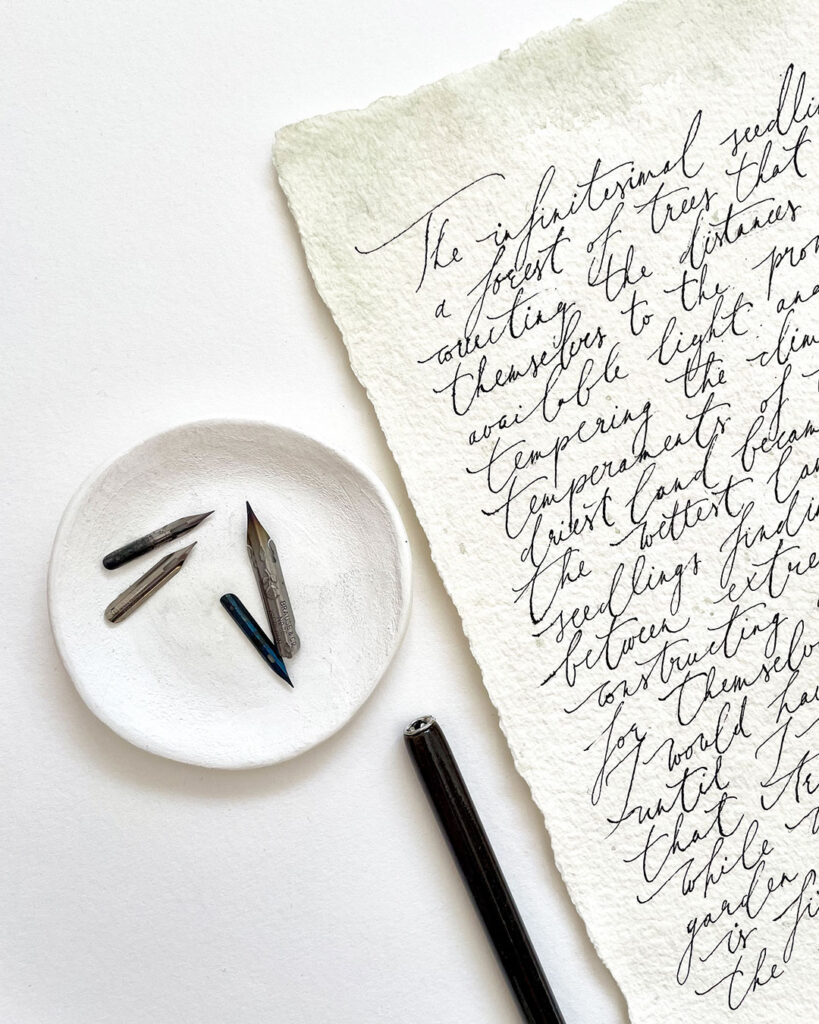 The infinitesimal seedli
a forest of trees that
the distances
themselves to the
available light and
tempering the clim
temperaments of
driest land becam
the wettest
seedlings findin
between extre
constructing
for themselv
I would
until I
that
while
garden
is
the